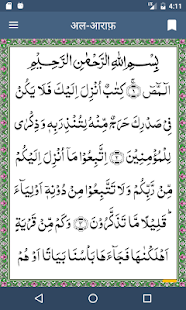 4:11
अल-आराफ़
بِسْمِ اللّٰهِ الرَّحْمٰنِ الرَّحِيْمِ
الٓمّٓصٓ ۝١ كِتٰبٌ اُنْزِلَ اِلَيْكَ فَلَا يَكُنْ
فِيْ صَدْرِكَ حَرَجٌ مِّنْهُ لِتُنْذِرَ بِهٖ وَذِكْرٰى
لِلْمُؤْمِنِيْنَ ۝٢ اِتَّبِعُوْا مَاۤ اُنْزِلَ اِلَيْكُمْ
مِّنْ رَّبِّكُمْ وَلَا تَتَّبِعُوْا مِنْ دُوْنِهٖۤ اَوْلِيَآءَ ؕ
قَلِيْلًا مَّا تَذَكَّرُوْنَ ۝٣ وَكَمْ مِّنْ قَرْيَةٍ
اَهْلَكْنٰهَا فَجَآءَهَا بَاْسُنَا بَيَاتًا اَوْ هُمْ